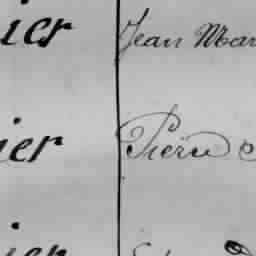 ier Jean Mar
ier Pierre
ier